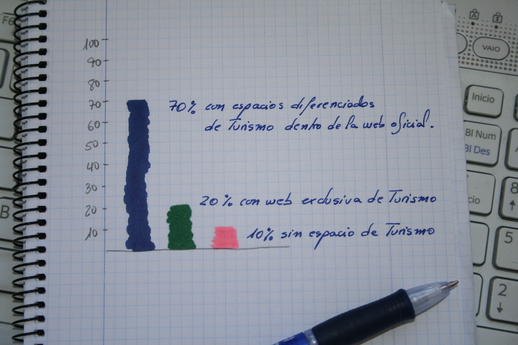 100
90
80
70
60
50
40
30
20
10
70% con espacios diferenciados
de Turismo dentro de la web oficial.
20% con web exclusiva de Turismo
10% sin espacio de Turismo
VAIO
Inicio
Bl Num
Bl Des
8
2
B